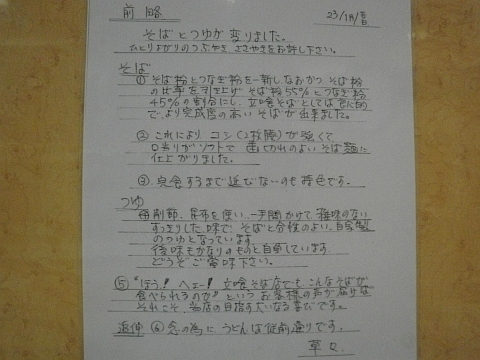 前略
23/1月/吉日
そばとつゆが変りました。
ひとりよがりのつぶやき、ささやきをお許し下さい。
そば
① そば粉とつなぎ粉を一新しなおかつ、そば粉
の比率を引き上げ そば粉55%とつなぎ粉
45%の割合にし、立喰そばとしては
でより完成度の高い そばが出来ました。
② これにより コシ(2枚腰)が強くて
口当りがソフトで 歯切れのよい そば麺に
仕上がりました。
③ 完食するまで延びないのも特色です。
つゆ
削節、昆布を使い、一手間かけて、雑味のない
すっきりした味で、そばと合性のよい、自家製
のつゆとなっています。
後味もかなりのものと自負しています。
どうぞご賞味下さい。
⑤ "ほう! へぇー! 立喰そば店でも、こんなそばが
食べられるのか" というお客様の声が
それこそ、当店の目指す大いなる喜びです。
追伸 ⑥ 念の為に、うどんは従前通りです。
草々